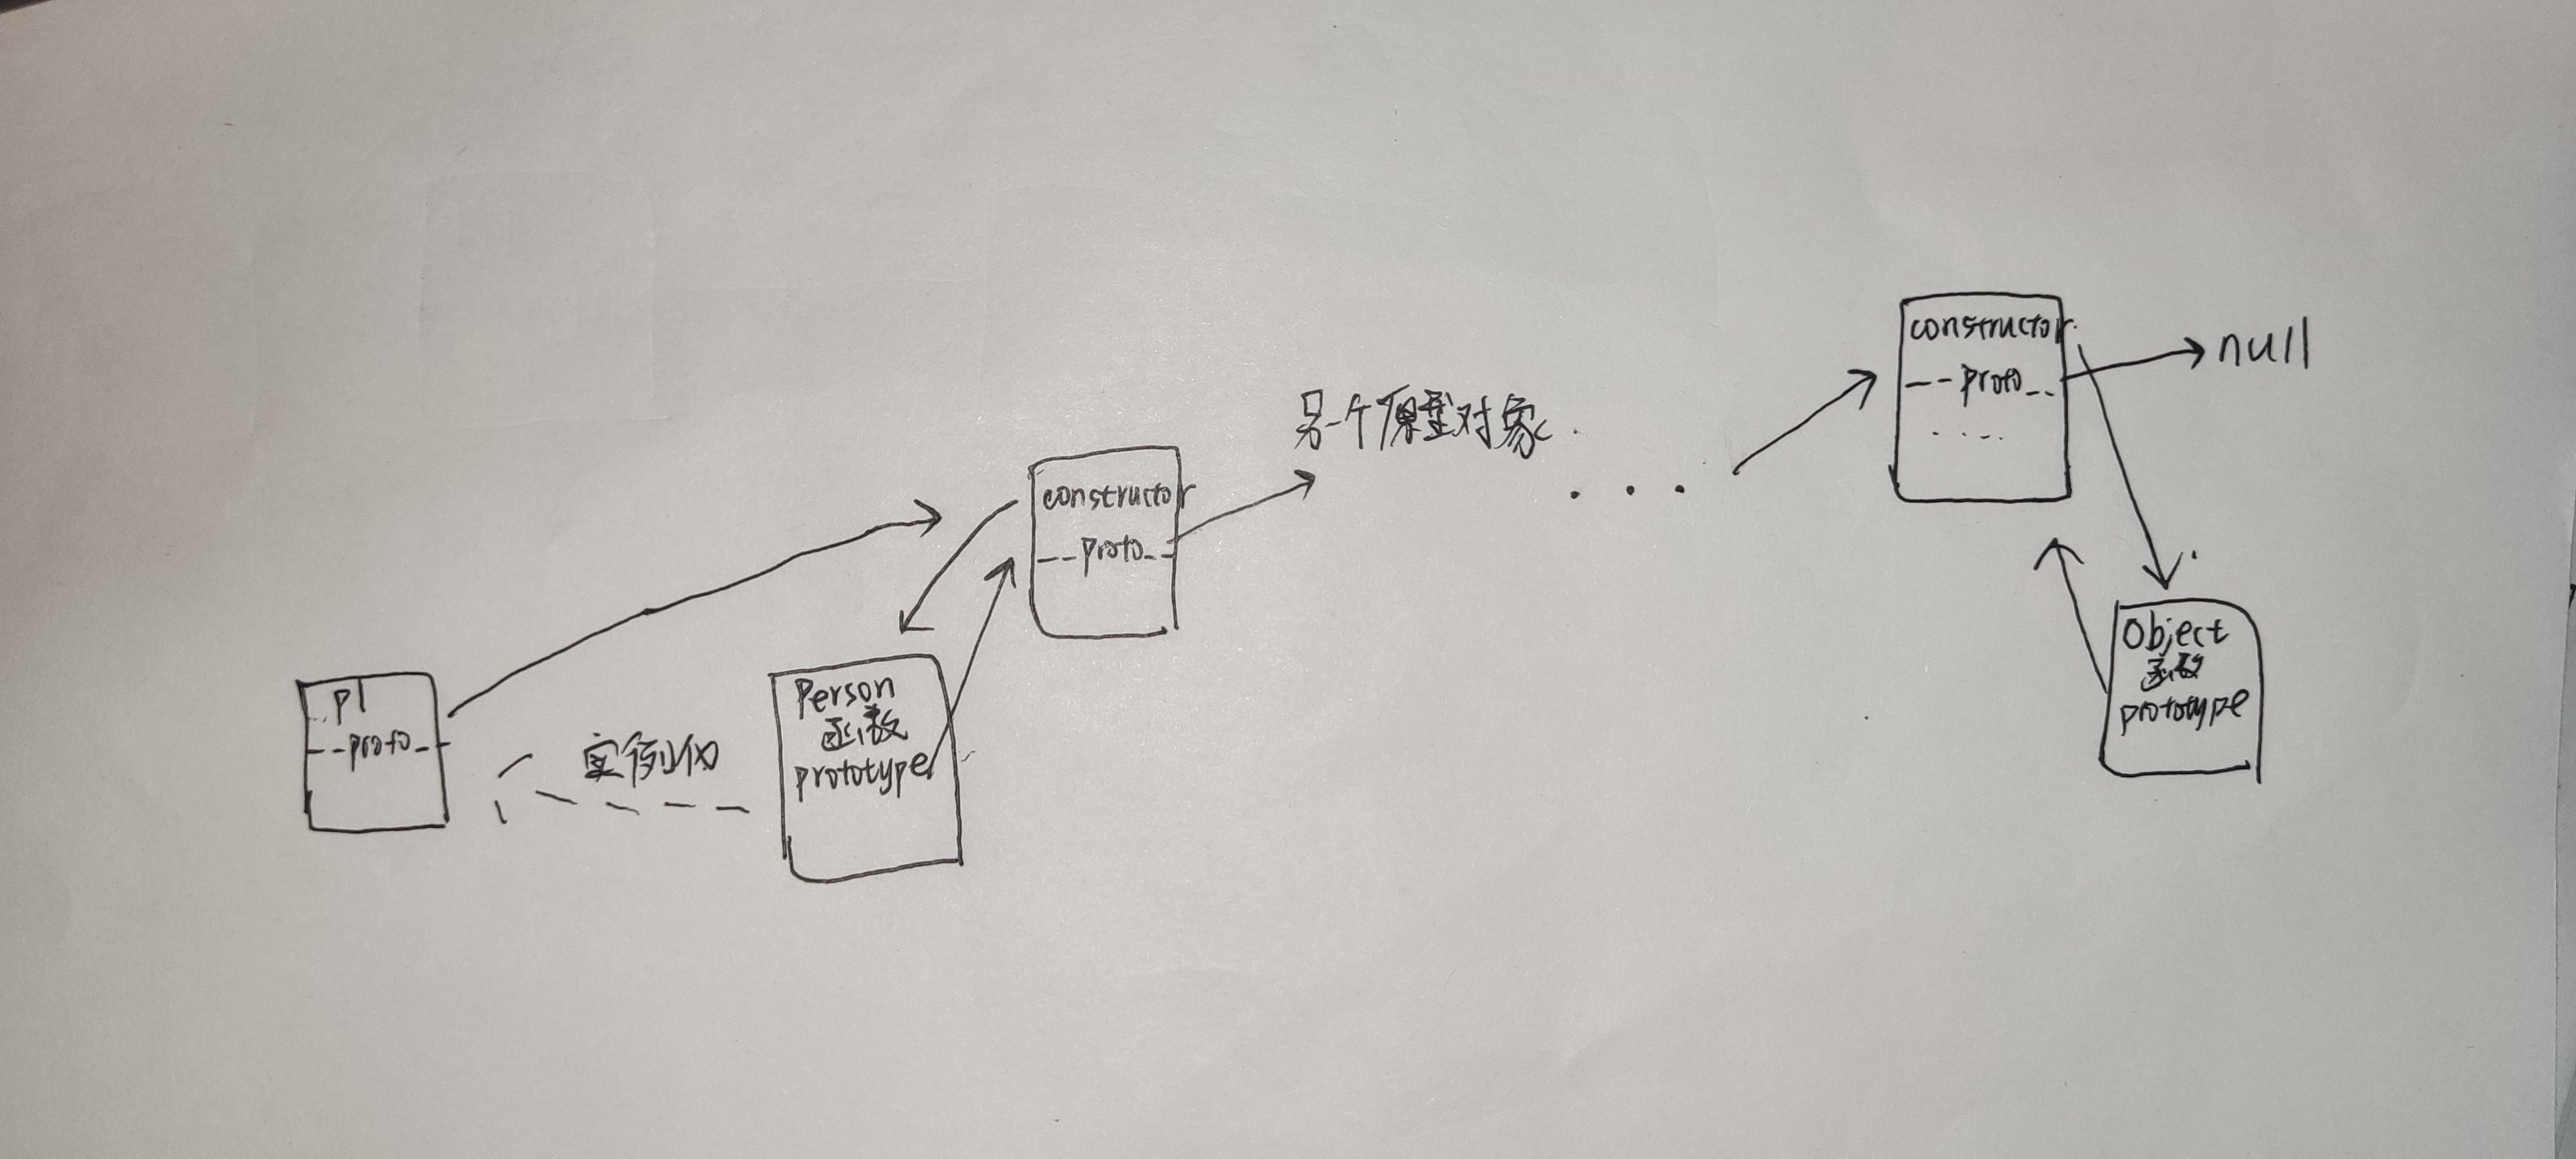 p1
--proto--
实例化
Person
函数
prototype
constructor
--proto--
另一个原型对象.
...
constructor
--proto--
.....
null
Object
函数
prototype